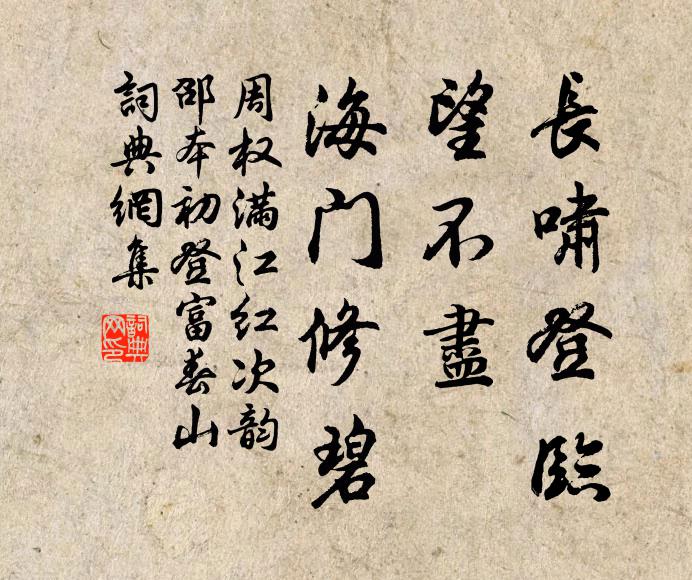 長嘯登臨
望不盡
海门修碧
周权满江红次韵
邵本初登富春山
詞典網集
詞典
网印